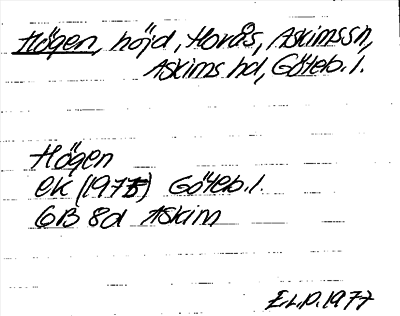 Högen, höjd, Hovås, Askimssn,
Askims hd, Göteb. l.
Högen
ek (1975) Göteb. l.
6B 8d Askim
E.L.P. 1977